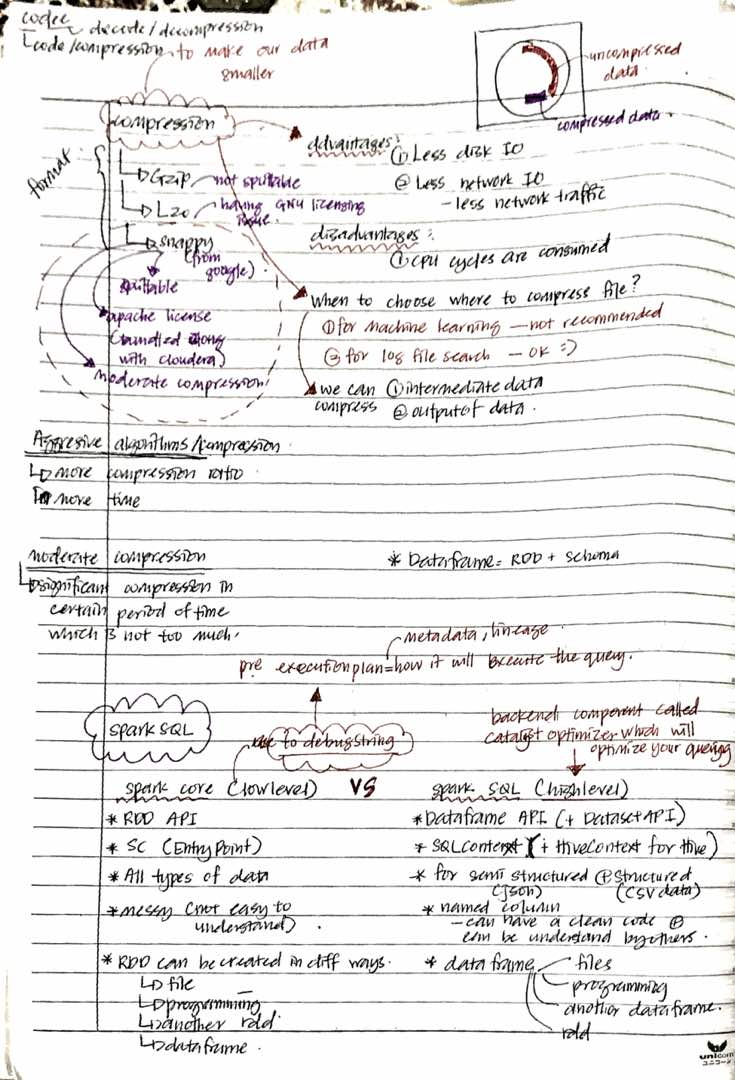 codec
decode/decompression
code/compression
to make our data
smaller
uncompressed
data.
compressed data.
compression
format
Gzip not splittable
Lzo having GNU licensing
issue.
snappy
(from
google)
splittable
apache license
(bundled along
with cloudera)
moderate compression
advantages:
① Less disk IO
② Less network IO
- less network traffic
disadvantages:
① cpu cycles are consumed
When to choose where to compress file?
① for machine learning — not recommended
② for log file search — ok :)
we can ① intermediate data
compress ② output of data.
Aggressive algorithms/compression
more compression ratio
more time
moderate compression
significant compression in
certain period of time
which is not too much.
* Dataframe = RDD + Schema
metadata, lineage.
pre execution plan = how it will execute the query.
spark SQL
use to debugstring
backend component called
catalyst optimizer which will
optimize your querying
spark core (low level) VS spark SQL (high level)
* RDD API
* SC (Entry Point)
* All types of data
* messy (not easy to
understand).
* RDD can be created in diff ways.
file
programming
another rdd
dataframe.
* Dataframe API (+ Dataset API)
* SQLContext (+ HiveContext for Hive)
* for semi structured ⊕ structured
(json) (CSV data)
* named column
- can have a clean code ⊕
can be understand by others.
* data frame files
programming
another dataframe.
rdd
unicorn
ユニコーン